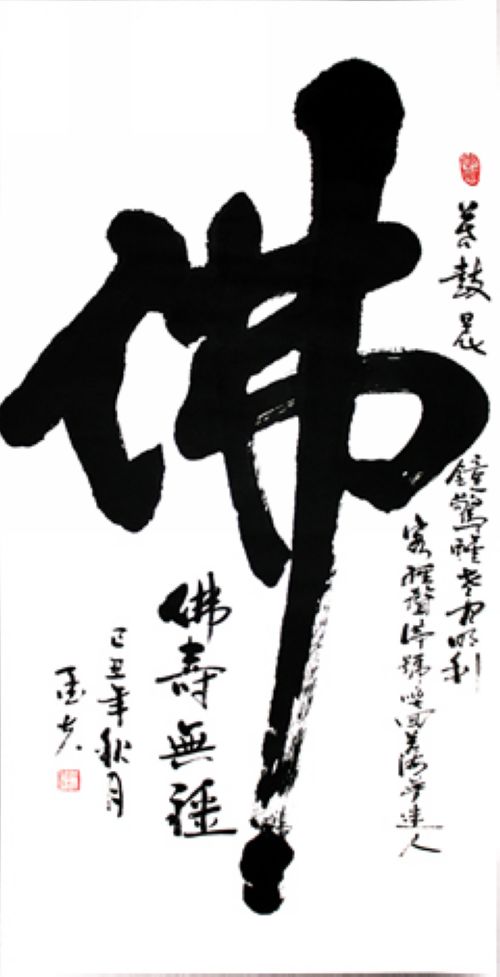 暮鼓晨
鐘驚醒世间名利
客經聲佛號喚回苦海夢迷人
佛
佛壽無疆
己丑年秋月